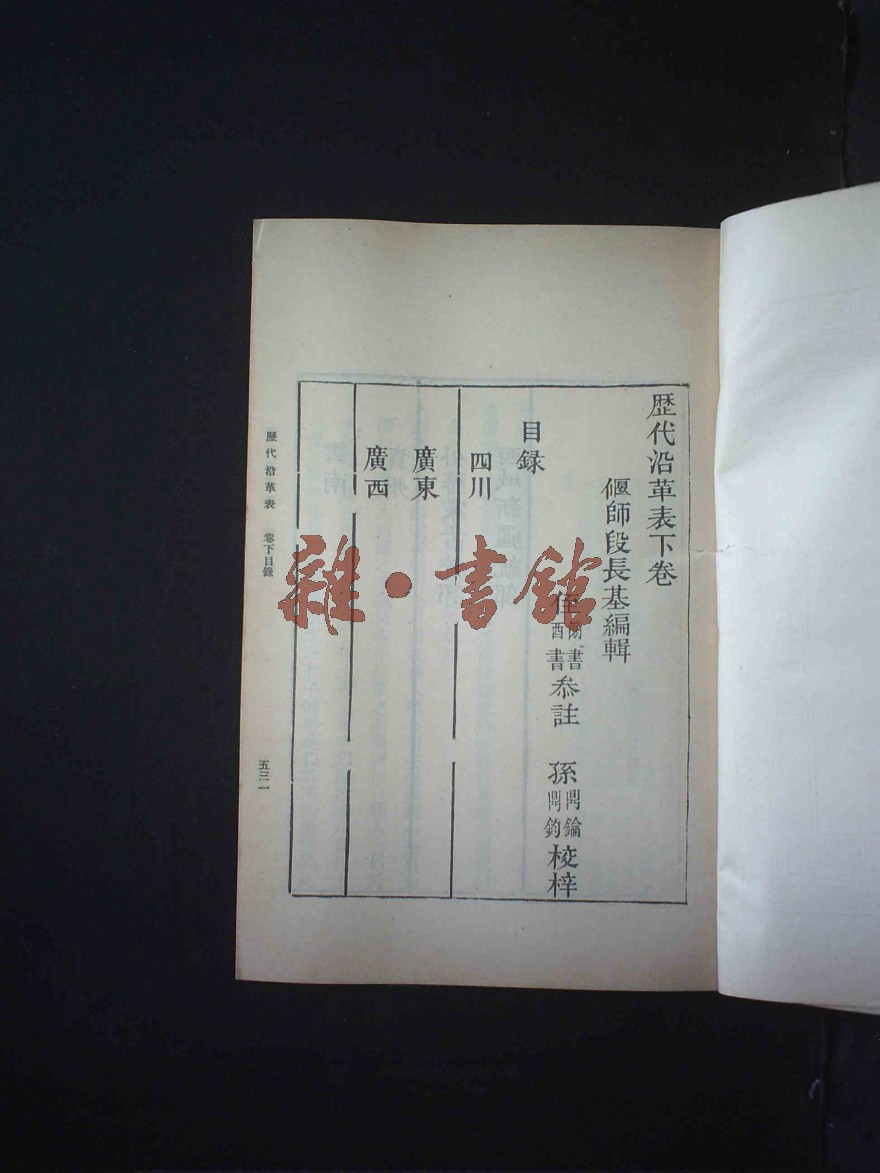 歷代沿革表下卷
偃師段長基編輯
侄 書 酉書 叅註 孫 鼎鑰 鼎鈞 校梓
目録
四川
廣東
廣西
歷代沿革表 卷下目錄
五三一
雜·書館